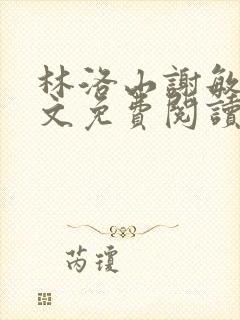 林洛山謝敏
文免費閱讀
芮瓊